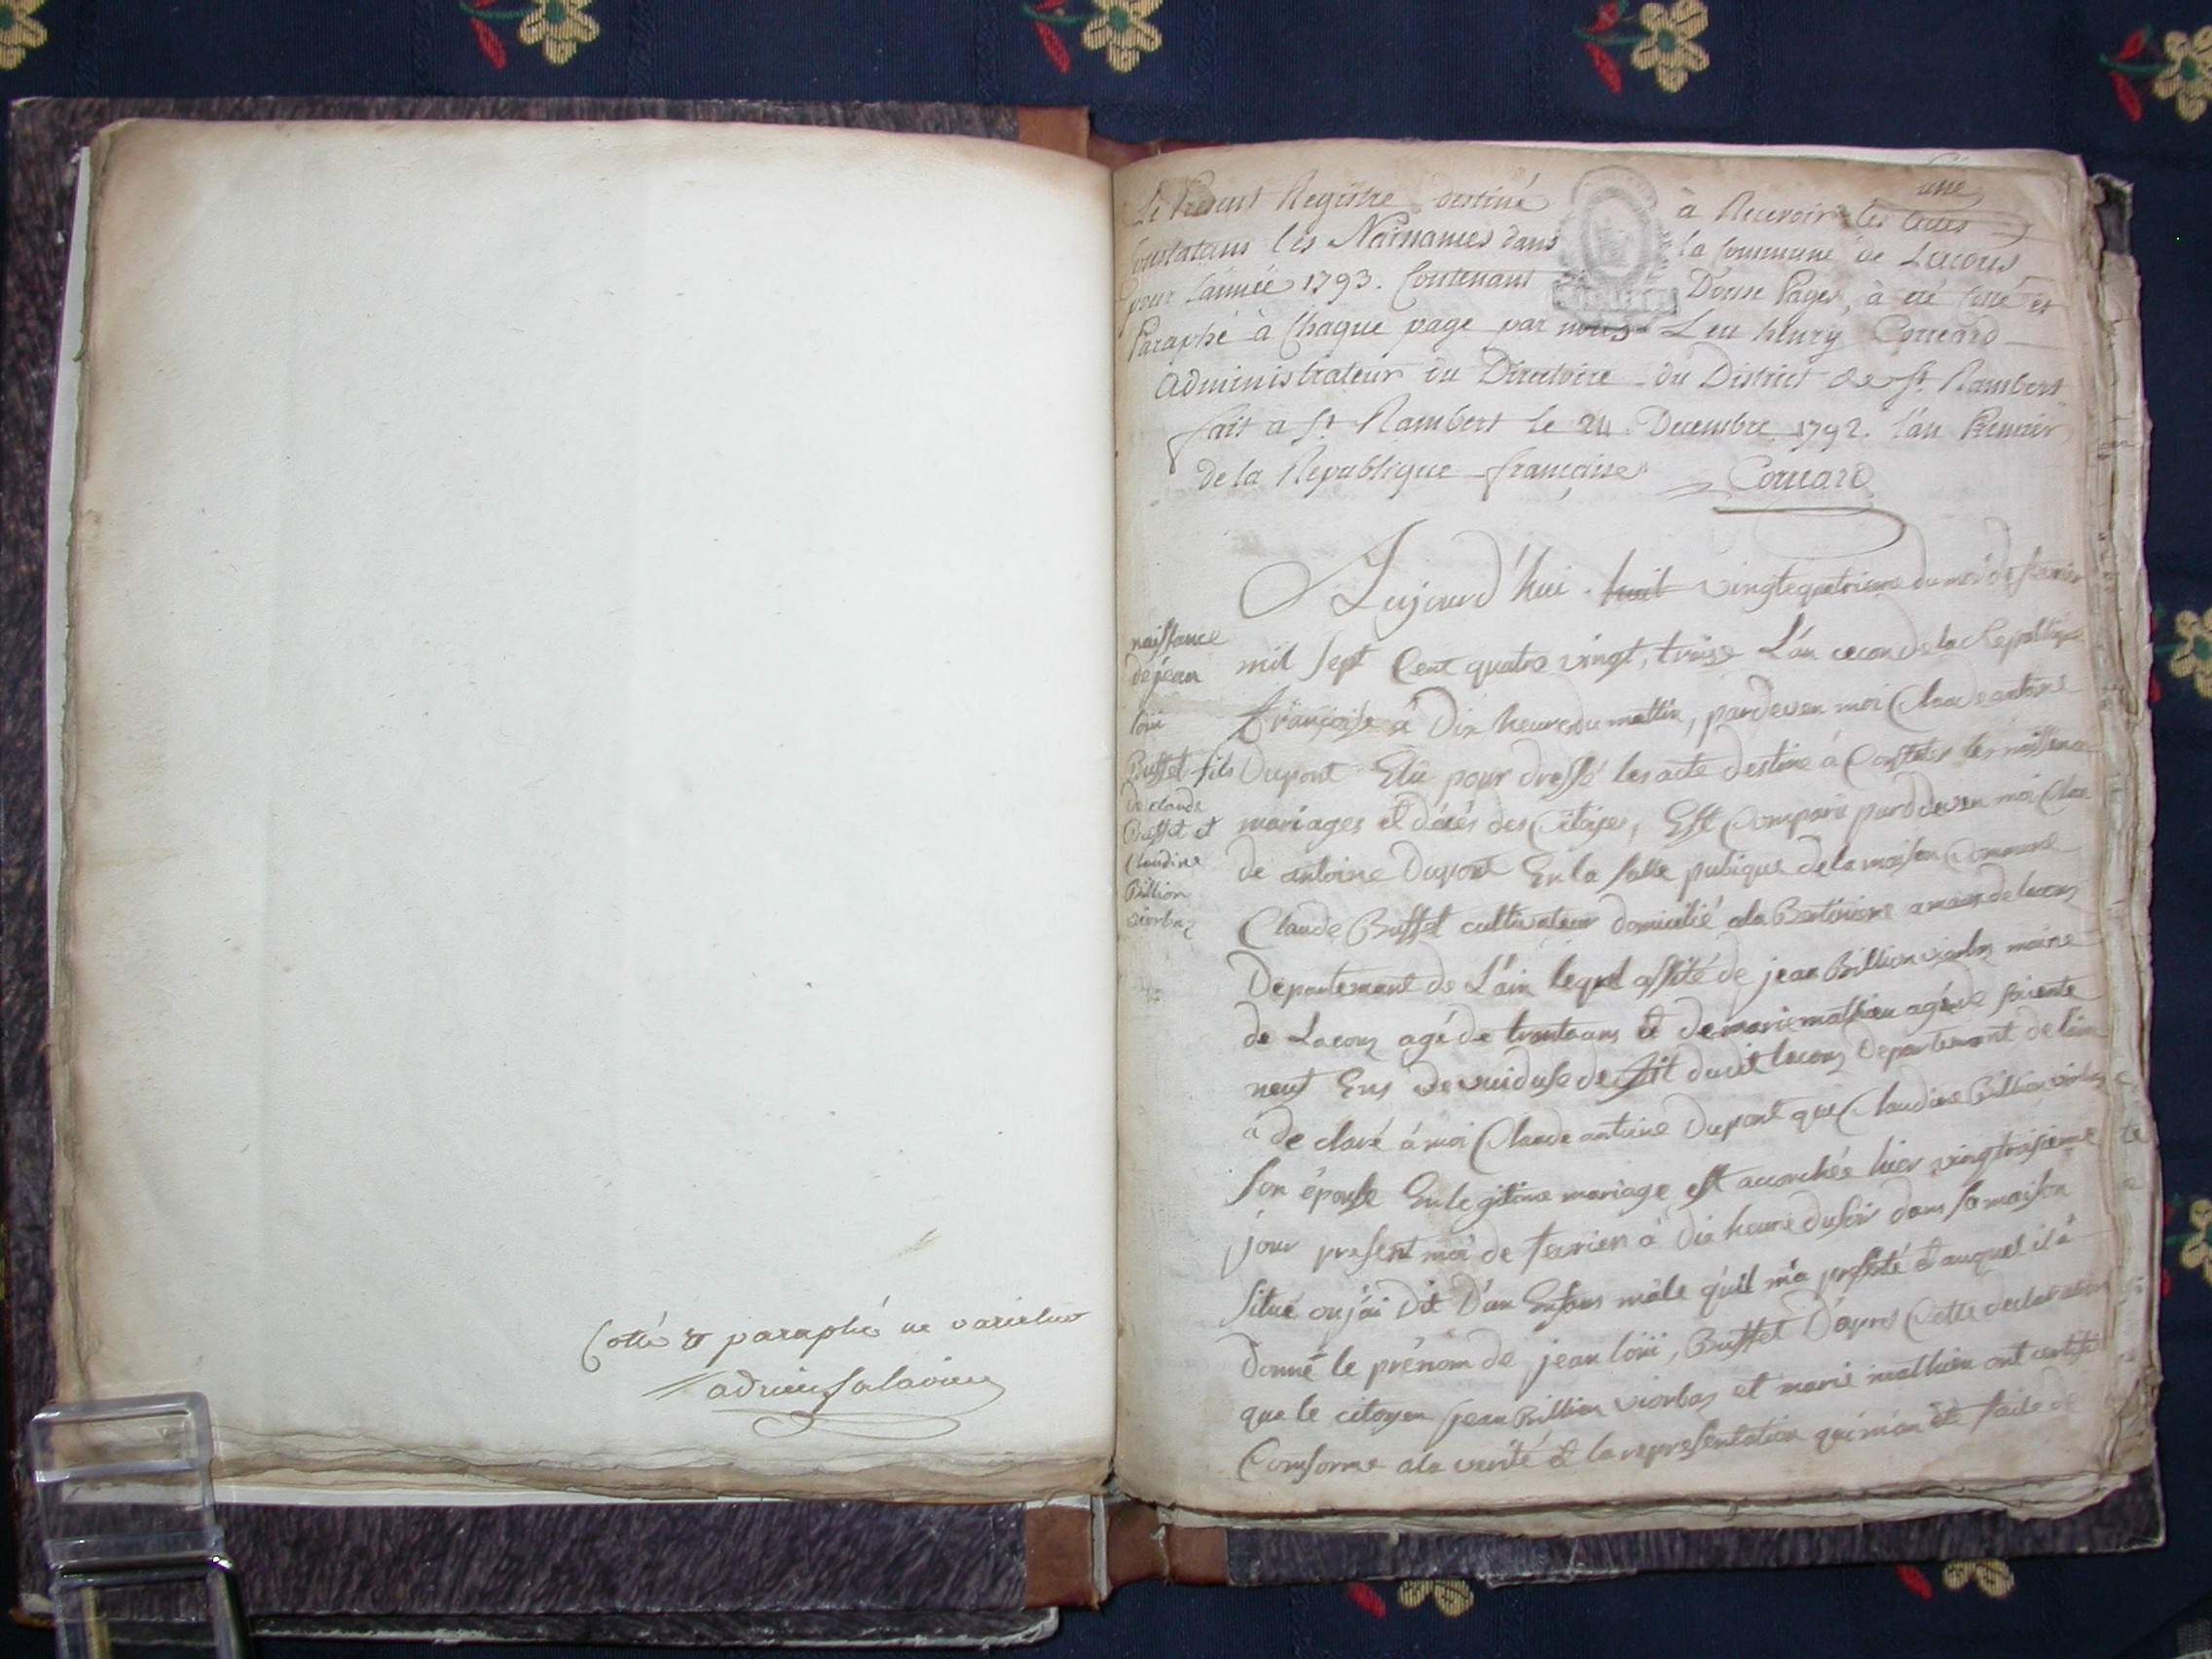 Cotté & paraphé ne varietur
adrien Salavieu
une
Le Présent Registre destiné à Recevoir les actes
Constatans les Naissances dans la Commune de Lacous
pour l'année 1793. Contenant Douse Pages, à été Cotté et
Paraphé à Chaque page par nous Leu henry Correard
Administrateur du Directoire du District de St. Rambert
fait a St Rambert le 24 Decembre 1792. l'an Premier
de la Republique françaises
Correard
naissance
de jean
loui
Buffet fils
de claude
Buffet et
Claudine
Brillion
viorbaz
Aujourd'hui huit vingtequatrieme du moi de fevrier
mil sept Cent quatre vingt, treise L'an cecon de la Republique
françoise à Dix heure du mattin, pardeven moi Claude antoine
Dupont Elu pour dressé les acte destiné à Constater les naissence
mariages et décès des Citoyes, Est Comparu pard deven moi Clau
de antoine Dupont En la salle publique de la maison Commune
Claude Buffet cultivateur domicilié a la Bertiniere de lacous
Departement de L'ain lequel assité de jean Brillion viorbaz maire
de Lacous agé de trente ans et de marie mathieu agé de soisente
neuf Ens de dudit lacous Departement de lain
à de claré à moi Claude antoine Dupont que Claudine Brillion viorbaz
son épouse En legitime mariage est accouchée hier vingtroisieme
jour present moi de fevrier à dix heure du soir dans sa maison
situé ou jai dit D'un Enfans mâle qu'il m'a presenté et auquel il à
donné le prénom de jean loui, Buffet D'apres Cette declaration
que le citoyen jean Brillion viorbaz et marie mathieu ont certifié
Conforme a la verité et la representation qui m'an été faite de